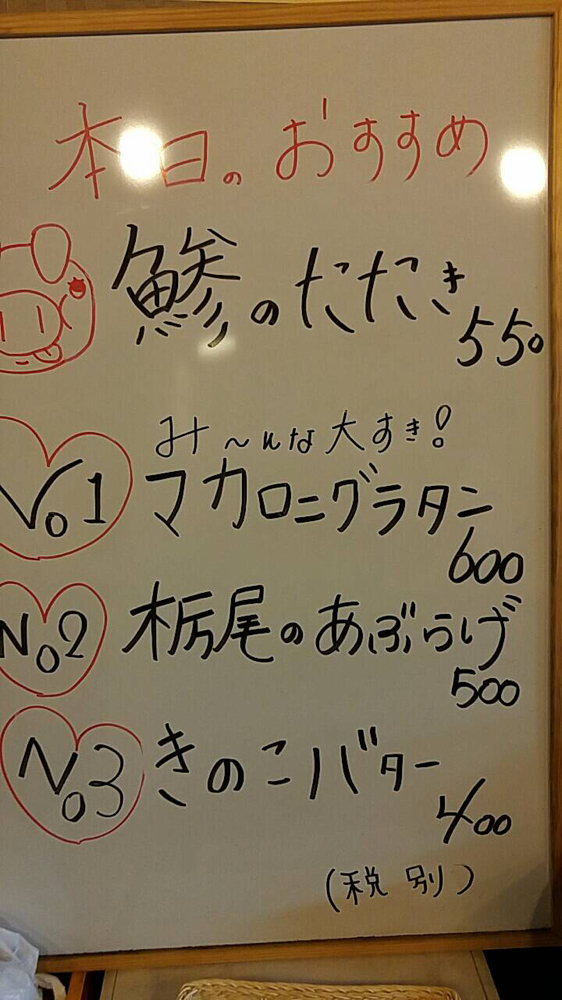 本日のおすすめ
鯵のたたき
550
み〜んな大すき!
No1 マカロニグラタン
600
No2 栃尾のあぶらげ
500
No3 きのこバター
400
(税別)